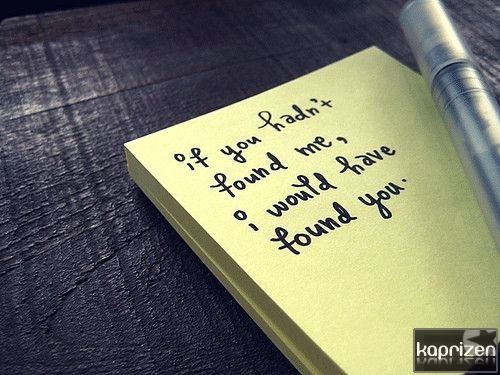 if you hadn't
found me,
i would have
found you.
kaprizen